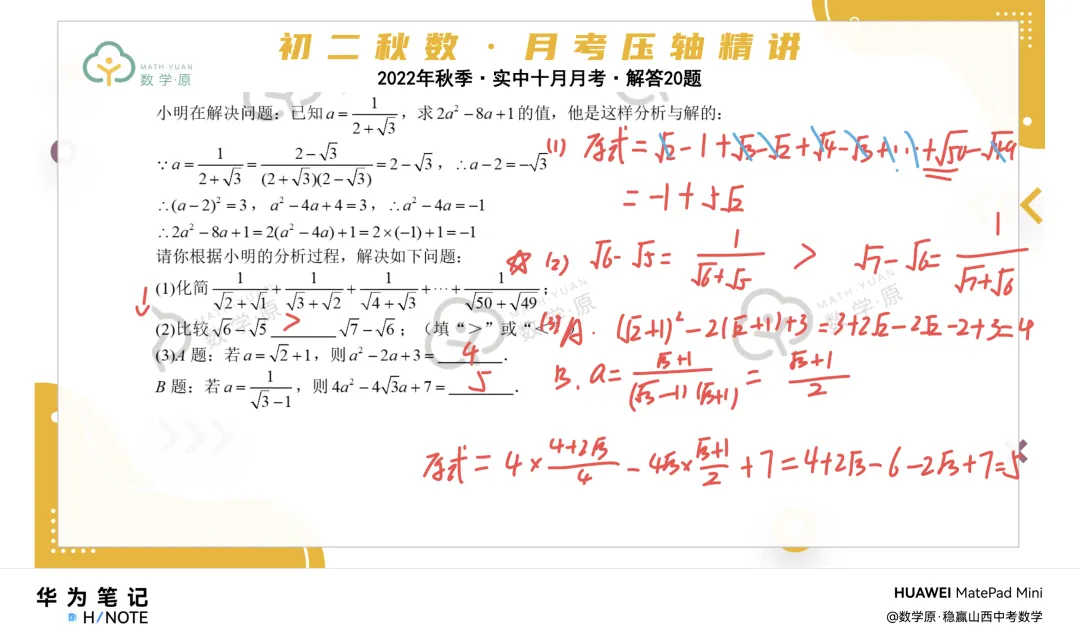 初二秋数·月考压轴精讲
MATH·YUAN
数学·原
2022年秋季·实中十月月考·解答20题
小明在解决问题：已知a=1/(2+√3)，求2a²−8a+1的值，他是这样分析与解的：
∵a=1/(2+√3)=(2−√3)/((2+√3)(2−√3))=2−√3，∴a−2=−√3
∴(a−2)²=3，a²−4a+4=3，∴a²−4a=−1
∴2a²−8a+1=2(a²−4a)+1=2×(−1)+1=−1
请你根据小明的分析过程，解决如下问题：
(1)化简1/(√2+√1)+1/(√3+√2)+1/(√4+√3)+···+1/(√50+√49)；
(2)比较√6−√5 > √7−√6；（填“>”或“<
(3)A题：若a=√2+1，则a²−2a+3= 4 .
B题：若a=1/(√3−1)，则4a²−4√3a+7= 5 .
(1) 原式=√2−1+√3−√2+√4−√3+···+√50−√49
=−1+5√2
(2) √6−√5=1/(√6+√5) > √7−√6=1/(√7+√6)
(3) A. (√2+1)²−2(√2+1)+3=3+2√2−2√2−2+3=4
B. a=(√3+1)/((√3−1)(√3+1))=(√3+1)/2
原式=4×(4+2√3)/4−4√3×(√3+1)/2+7=4+2√3−6−2√3+7=5
华为笔记
H/NOTE
HUAWEI MatePad Mini
@数学原·稳赢山西中考数学